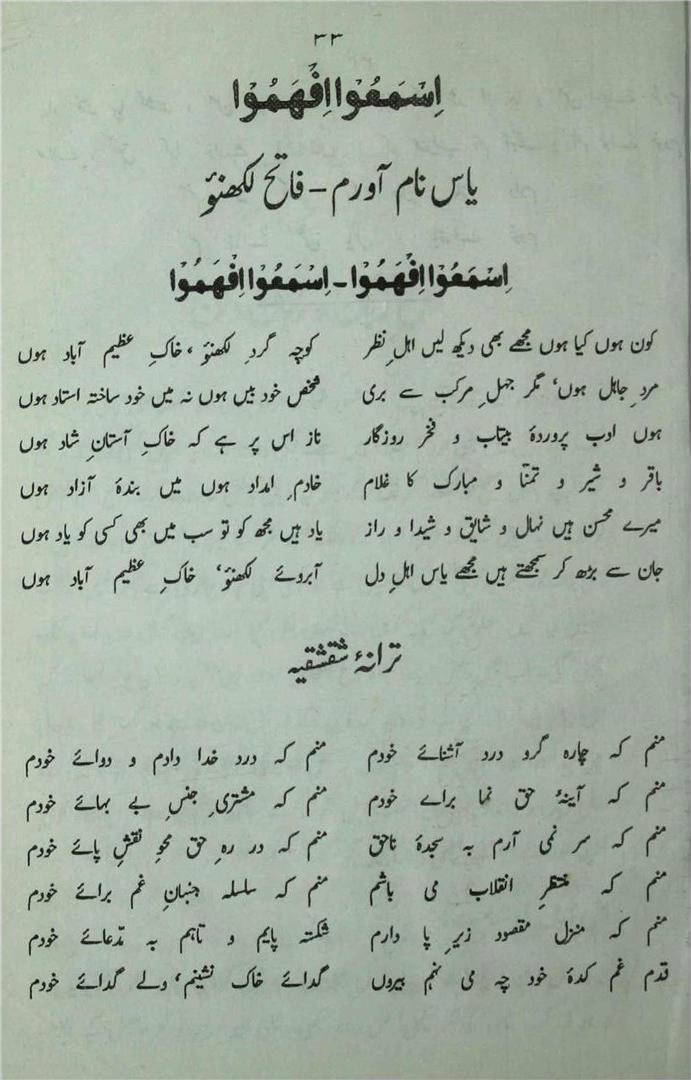 ۳۳
اِسْمَعُوْا اِفْهَمُوْا
یاس نام آورم - فاتح لکھنؤ
اِسْمَعُوْا اِفْهَمُوْا - اِسْمَعُوْا اِفْهَمُوْا
کون ہوں کیا ہوں مجھے بھی دیکھ لیں اہلِ نظر کوچہ گردِ لکھنؤ، خاکِ عظیم آباد ہوں
مردِ جاہل ہوں، مگر جہلِ مرکب سے بری شخص خود بیں ہوں نہ میں خود ساختہ استاد ہوں
ہوں ادب پروردۂ بیتاب و فخر روزگار ناز اس پر ہے کہ خاکِ آستانِ شاد ہوں
باقر و شیر و تمنّا و مبارک کا غلام خادمِ امداد ہوں میں بندۂ آزاد ہوں
میرے محسن ہیں نہال و شایق و شیدا و راز یاد ہیں مجھ کو تو سب میں بھی کسی کو یاد ہوں
جان سے بڑھ کر سمجھتے ہیں مجھے یاس اہلِ دل آبروئے لکھنؤ، خاکِ عظیم آباد ہوں
ترانۂ شقشقیہ
منم کہ چارہ گرو درد آشنائے خودم منم کہ درد خدا دادم و دوائے خودم
منم کہ آینۂ حق نما براے خودم منم کہ مشتریِ جنسِ بے بہائے خودم
منم کہ سر نمی آرم بہ سجدۂ ناحق منم کہ در رہِ حق محوِ نقشِ پائے خودم
منم کہ منتظرِ انقلاب می باشم منم کہ سلسلہ جنبانِ غم برائے خودم
منم کہ منزل مقصود زیرِ پا دارم شکستہ پایم و تاہم بہ مدّعائے خودم
قدم غم کدۂ خود چہ می نہم بیروں گدائے خاک نشینم، ولے گدائے خودم